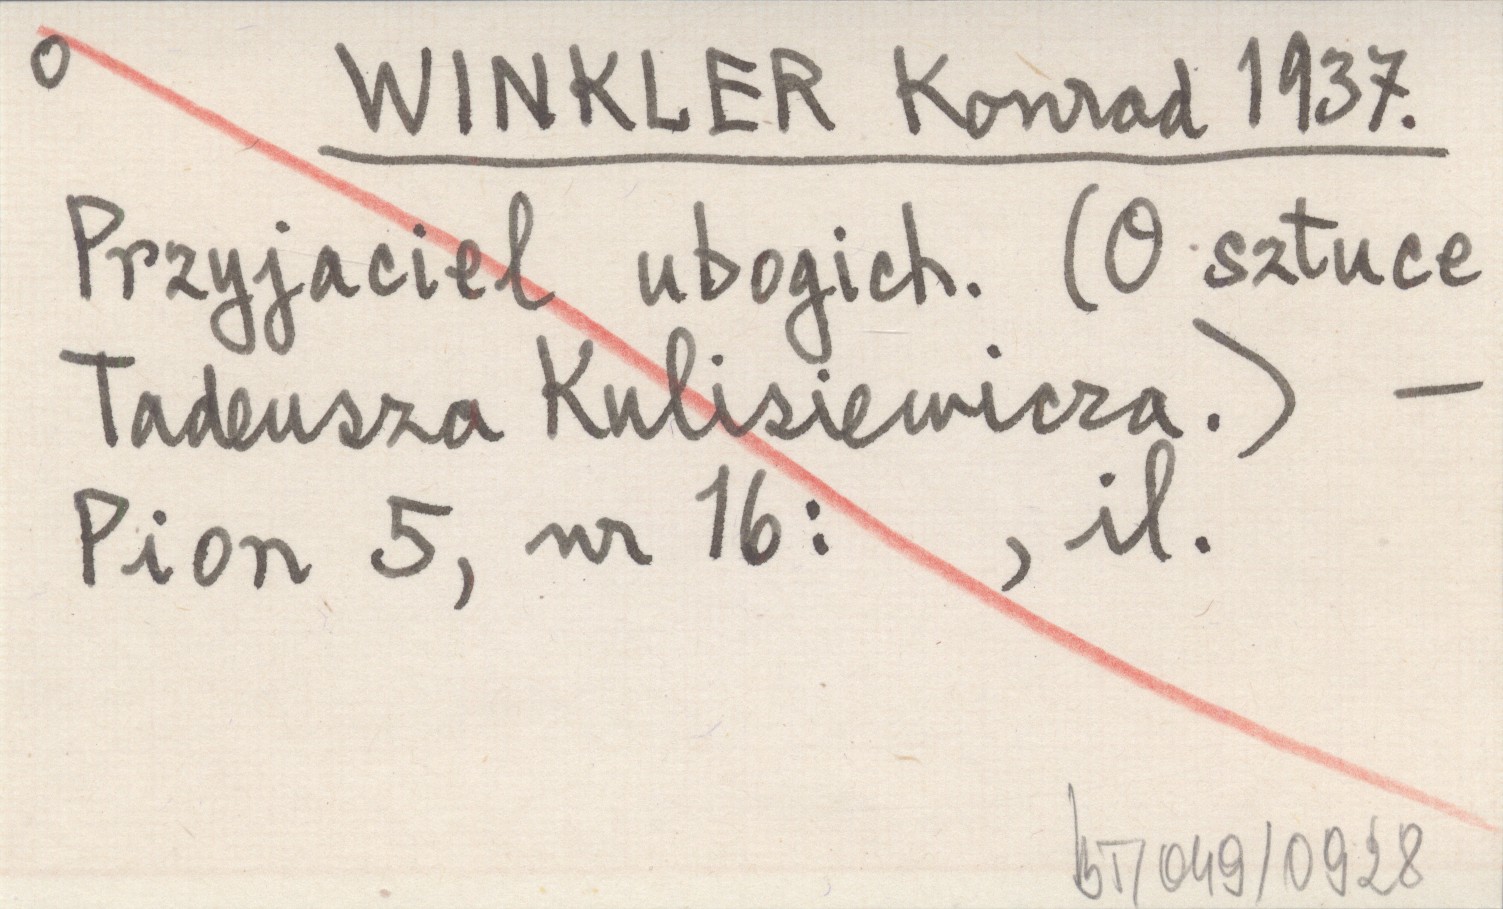 o WINKLER Konrad 1937.
Przyjaciel ubogich. (O sztuce
Tadeusza Kulisiewicza.) —
Pion 5, nr 16: , il.
BT/049/0928